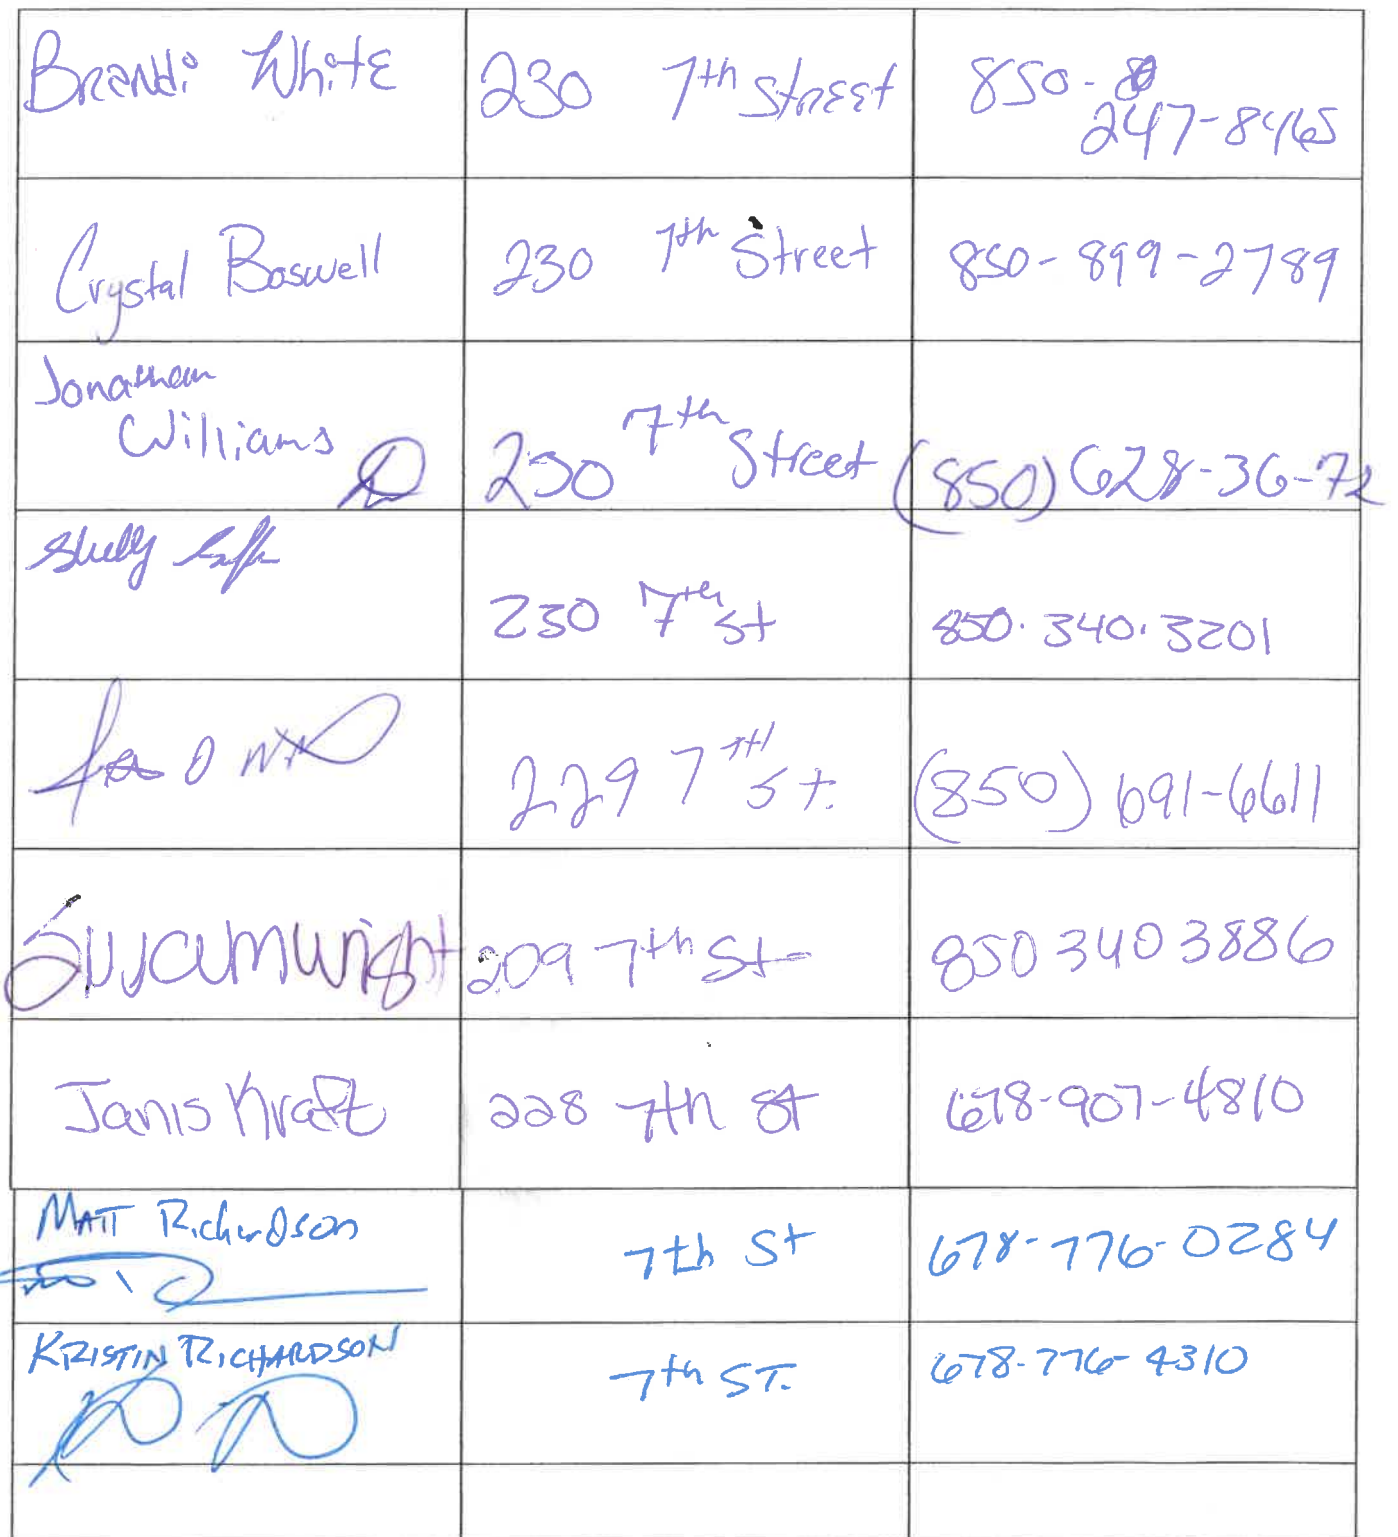 Brandi White 230 7th Street 850-
247-8465
Crystal Boswell 230 7th Street 850-899-2789
Jonathan
Williams 230 7th Street (850) 628-36-72
Shelly
230 7th St 850.340.3201
229 7th St. (850) 691-6611
wright 209 7th St- 850 340 3886
Janis Kraft 228 7th St 678-907-4810
Matt Richardson
7th St 678-776-0284
KRISTIN RICHARDSON
7th ST. 678-776-4310